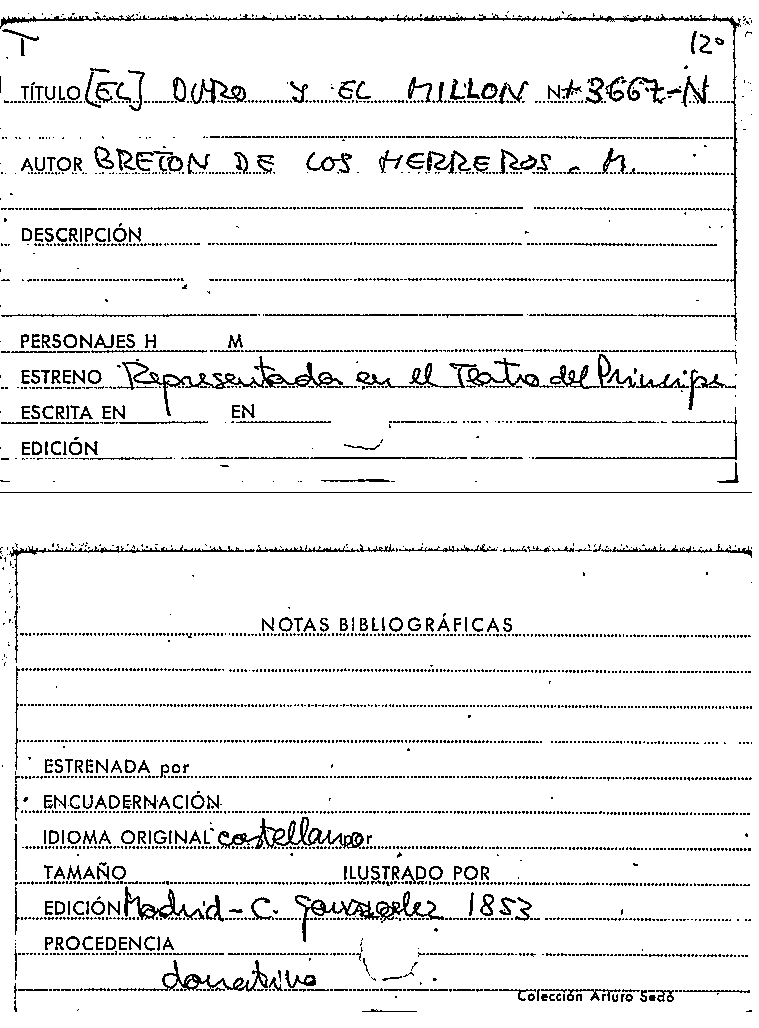 T 12º
TÍTULO [EL] DURO Y EL MILLON Nº 3667-N
AUTOR BRETON DE LOS HERREROS - M.
DESCRIPCIÓN
PERSONAJES H M
ESTRENO Representada en el Teatro del Principe
ESCRITA EN EN
EDICIÓN
NOTAS BIBLIOGRÁFICAS
ESTRENADA por
ENCUADERNACIÓN
IDIOMA ORIGINAL castellano por
TAMAÑO ILUSTRADO POR
EDICIÓN Madrid - C. Gonzalez 1853
PROCEDENCIA
donativo
Colección Arturo Sedó